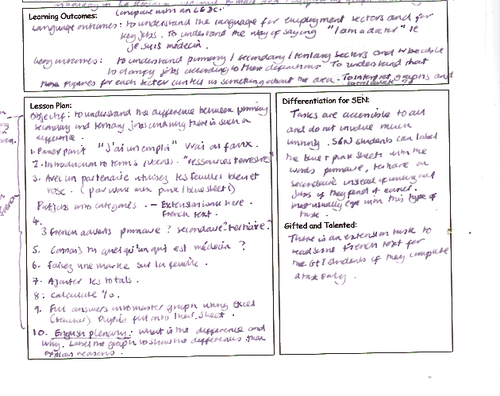 Learning Outcomes: (compare with an LEDC.
Language outcomes: to understand the language for employment sectors and for
key jobs. To understand the way of saying "I am a doctor" ie
je suis médecin.
Geog outcomes: to understand primary / secondary / tertiary sectors and to be able
to classify jobs according to these definitions. To understand that
these figures for each sector can tell us something about the area. To interpret graphs and
Lesson Plan:
Objectif: to understand the difference between primary
secondary and tertiary jobs and why there is such a
difference.
1. Powerpoint "J'ai un emploi" vrai ou faux.
2. Introduction to terms
3. Avec un partenaire utilisez les feuilles bleu et
rose. (pair work with pink / blue sheets)
Put jobs into categories. - Extension work here.
French text.
4.
3 French adverts primaire? secondaire? tertiaire?
5. Connais tu quelqu'un qui est médecin?
6. Faites une marque sur la feuille.
7. Ajouter les totals.
8. Calculate %.
9. Fill answers into master graph using Excel
(teacher) Pupils fill onto their sheet.
10. English plenary: what is the difference and
why. Label the graph to show the differences then
explain reasons.
Differentiation for SEN:
Tasks are accessible to all
and do not involve much
writing. SEN students can label
the blue + pink sheets with the
words primaire, tertiaire or
secondaire instead of writing out
jobs if they find it easier.
task.
Gifted and Talented:
There is an extension task to
read some French text for
the G+T students if they complete
a task early.